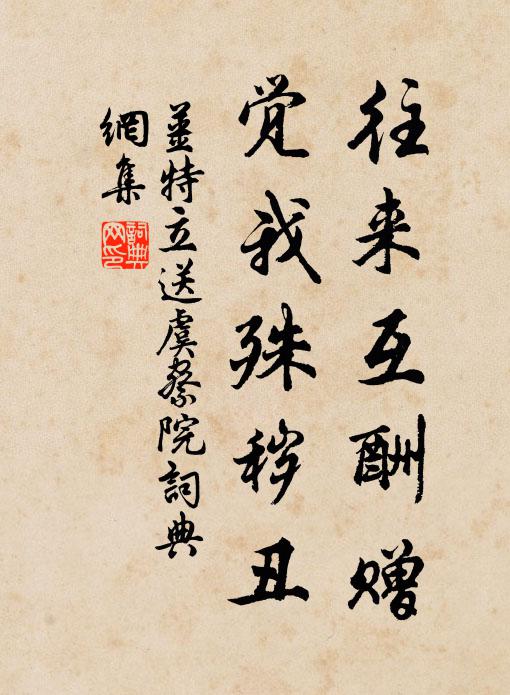 往来互酬赠
觉我殊秽丑
姜特立送虞察院詞典
網集
詞典网印